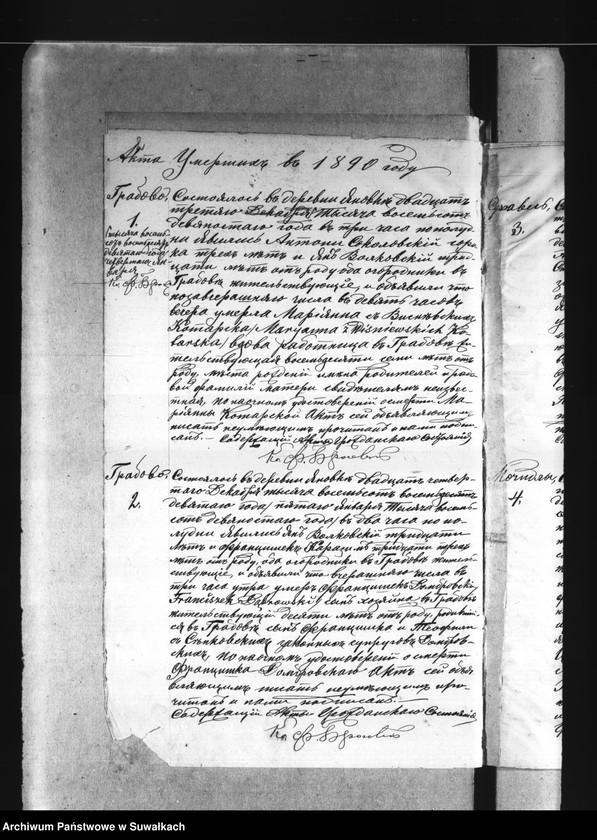 Акта Умершихъ въ 1890 году
Грабово.
1.
Состоялось въ деревни Яновкѣ двадцать
третяго Декабря тысяча восемьсотъ
девяностаго года въ три часа по полуд-
ни явились Антони Соколовскій соро-
ка трехъ лѣтъ и Янъ Волковскій трид-
цати лѣтъ отъ роду оба огородники въ
Грабовѣ жительствующіе, и объявили что
позавчерашняго числа въ девять часовъ
вечера умерла Маріянна съ Висневскихъ
Котарска /Maryanna z Wiśniewskich Ko-
tarska/ вдова работница въ Грабовѣ жи-
тельствующая восемьдесяти семи лѣтъ отъ
роду, мѣста рожденій имена родителей и родо-
вой фамиліи матери свидѣтелямъ неизвес-
тная, по наочномъ удостовереній о смерти Ма-
ріянны Котарской Актъ сей объявляющимъ
писать неумѣющимъ прочитанъ и нами подпи-
санъ. Содержащій Акты Гражданскаго Состоянія
Грабово.
2.
Состоялось въ деревни Яновкѣ двадцать четвер-
таго Декабря тысяча восемьсотъ восемьдесятъ
девятаго года /пятаго Января тысяча восемь-
сотъ девяностаго года/ въ два часа по по-
лудни явились Янъ Волковскій тридцати
лѣтъ и Францишекъ Карасимъ тридцати трехъ
лѣтъ отъ роду, оба огородники въ Грабовѣ житель-
ствующіе, и объявили что вчерашняго числа въ
три часа утра умеръ Францишекъ Домбровскій
/Franciszek Dąbrowski/ сынъ хозяина, въ Грабовѣ
жительствующій десяти лѣтъ отъ роду, родивші-
йся въ Грабовѣ сынъ Францишка и Теофили
съ Сѣнковскихъ законныхъ супруговъ Домбров-
скихъ, по наочномъ удостовереній о смерти
Францишка Домбровскаго Актъ сей объя-
вляющимъ писать неумѣющимъ про-
читанъ и нами подписанъ.
Содержащій Акты Гражданскаго Состоянія
3.
4.
Archiwum Państwowe w Suwałkach